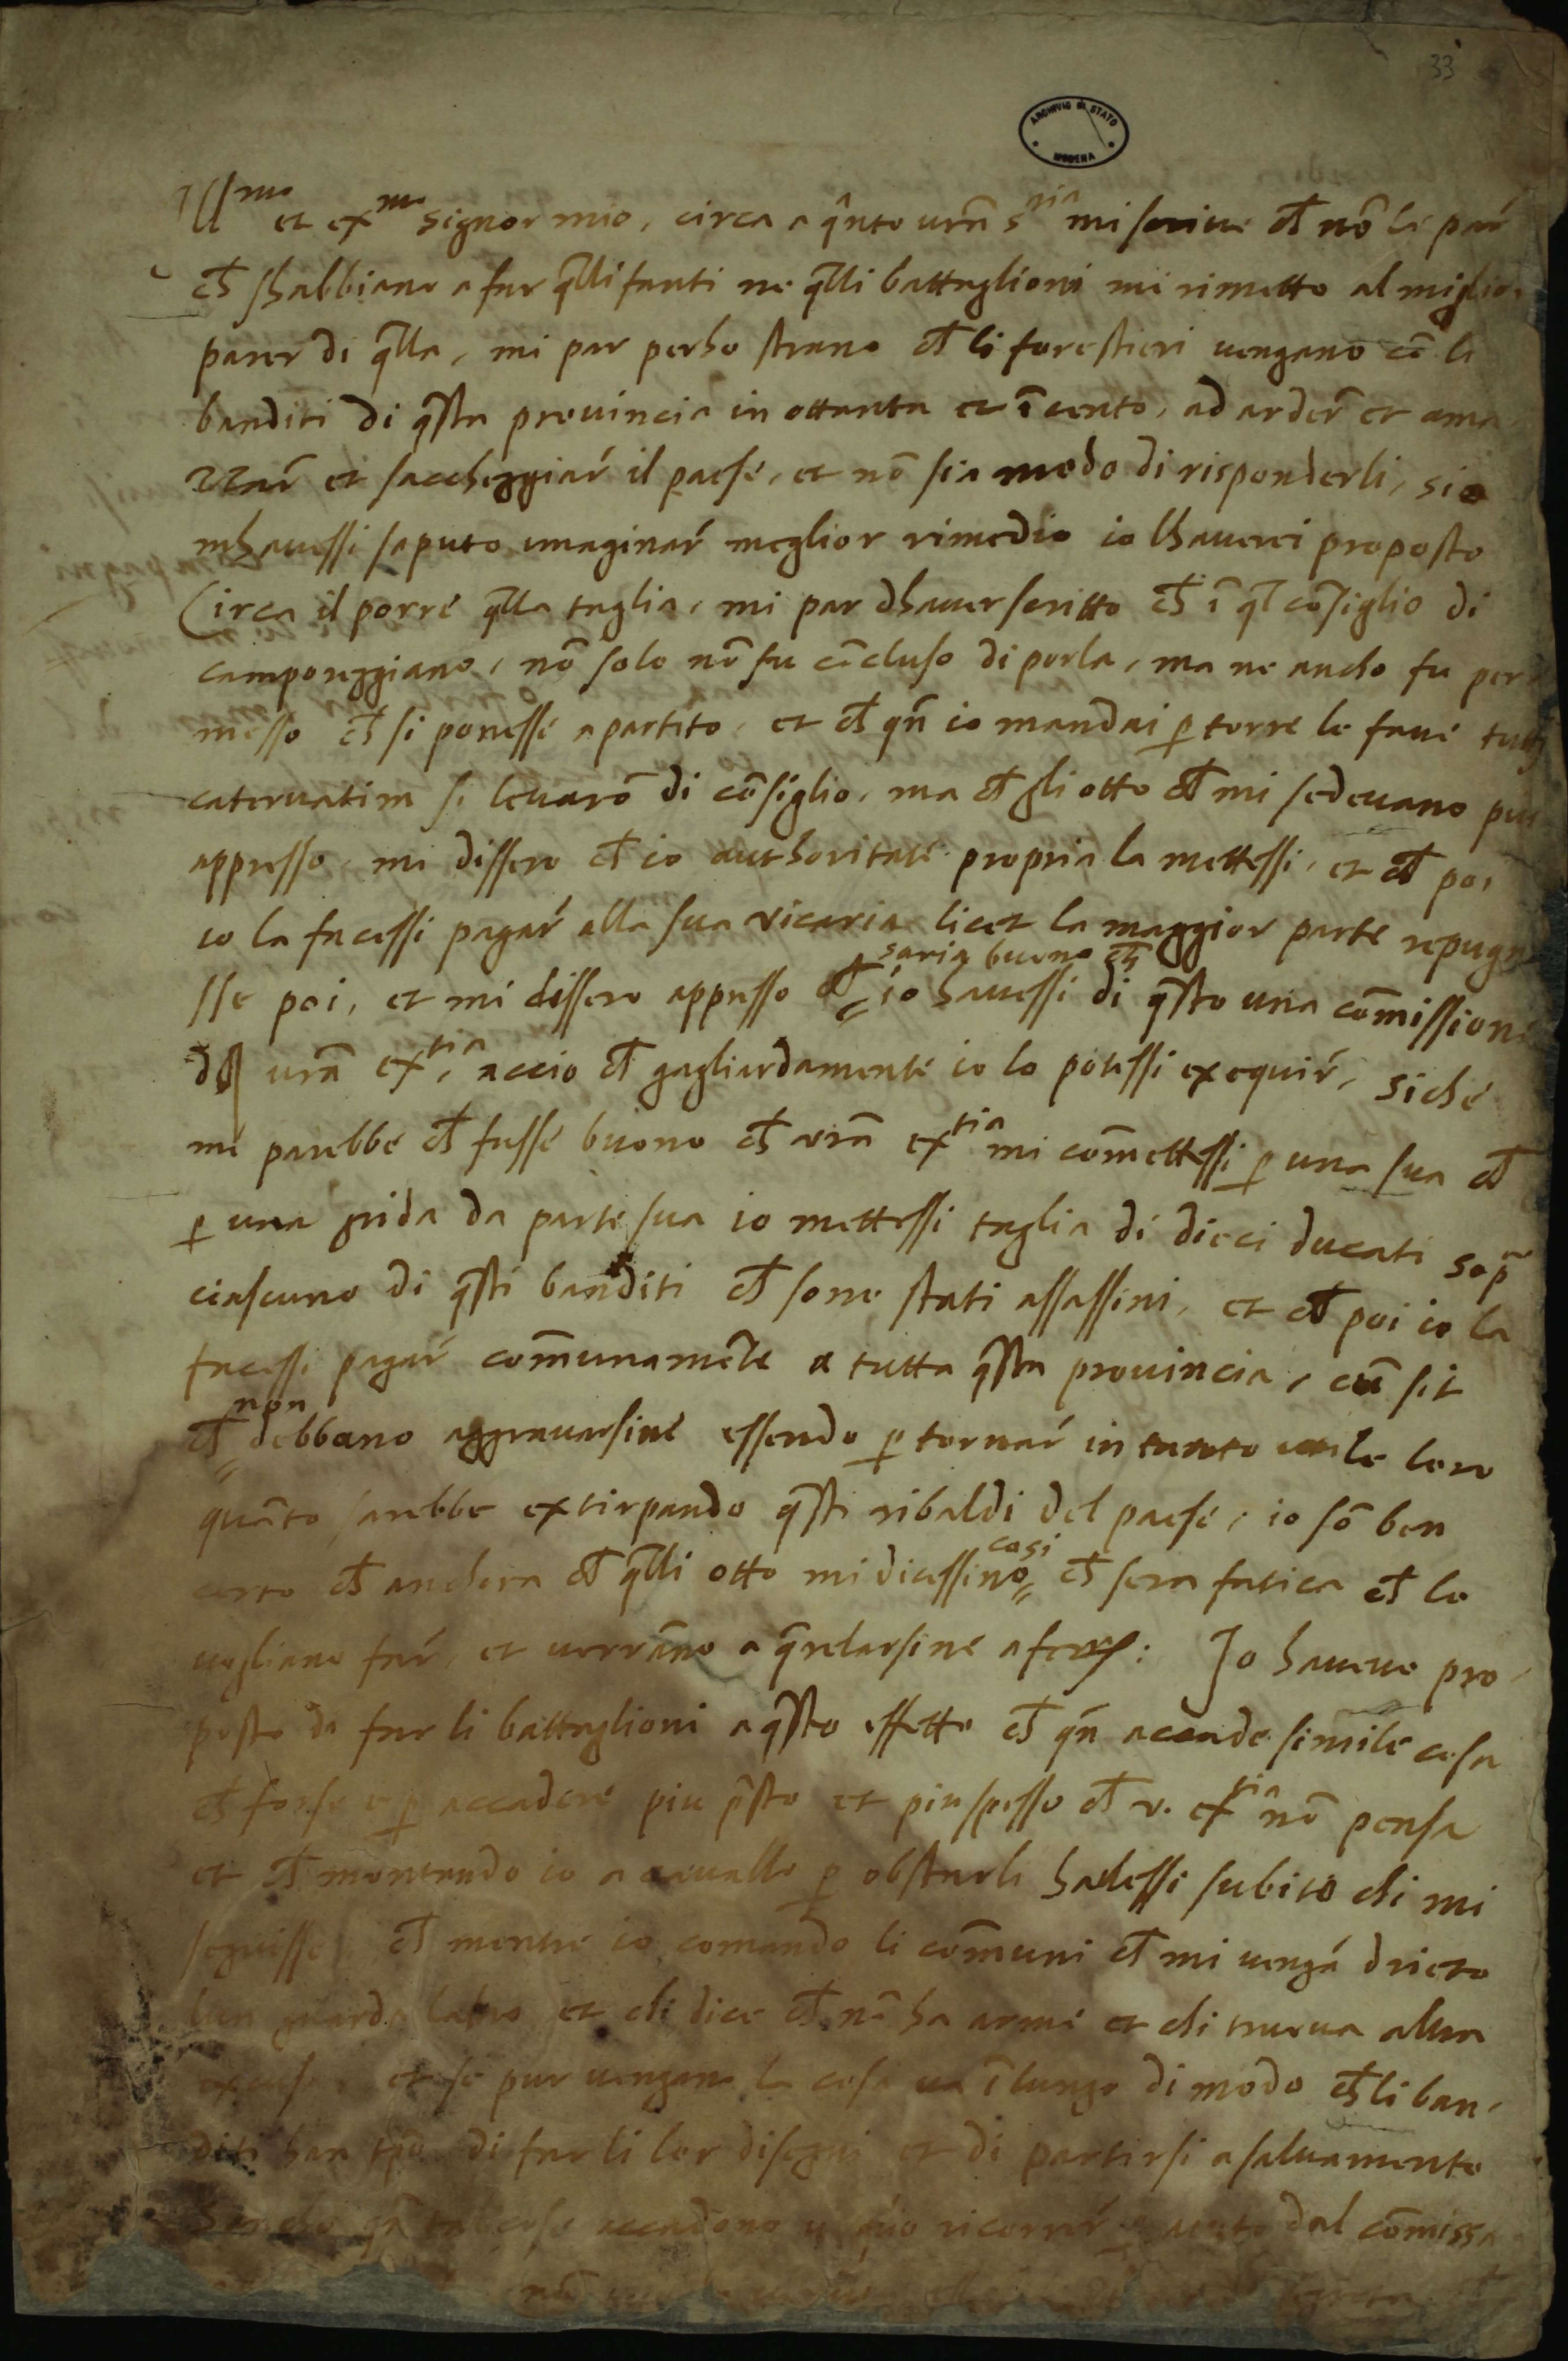 33
ARCHIVIO DI STATO
MODENA
Ill^mo et ex^mo signor mio, circa a q̄nto vrā S^ria mi scrive ch̄ nō li par
ch̄ s'habbiano a far q̄lli fanti ne q̄lli battaglioni mi rimetto al miglior
parer di q̄lla, mi par perho strano ch̄ li forestieri vengano cō li
banditi di q̄sta provincia in ottanta et ī cento, ad arder̄ et ama
zzar et saccheggiar il paese, et nō sia modo di risponderli, sio
mhavessi saputo imaginar meglior rimedio io lhaverei proposto
Circa il porre q̄lla taglia, mi par dhaver scritto ch̄ ī q̄l cōsiglio di
camporeggiano, nō solo nō fu cōcluso di porla, ma ne ancho fu per
messo ch̄ si ponesse a partito, et ch̄ qn̄ io mandai p̱ torre le fave tutti
catervatim si levarō di cōsiglio, ma ch̄ gli otto ch̄ mi sedevano piu
appresso, mi dissero ch̄ io authoritate propria la mettessi, et ch̄ poi
io la facessi pagar alla sua vicaria licet la maggior parte repugna
saria buono ch̄
sse poi, et mi dissero appresso ch̄ io havessi di q̄sto una cōmissione
da vrā ex^tia, accio ch̄ gagliardamente io lo potessi exequir, siche
mi parebbe ch̄ fusse buono ch̄ vrā ex^tia mi cōmettessi p̱ una sua ch̄
p̱ una grida da parte sua io mettessi taglia di dieci ducati sop̄
ciascuno di q̄sti banditi ch̄ sono stati assassini, et ch̄ poi io la
facessi pagar cōmunamēte a tutta q̄sta provincia, cū sit
non
ch̄ debbano aggravarsine essendo p̱ tornar in tanto utile loro
quāto sarebbe extirpando q̄sti ribaldi del paese, io sō ben
cosi
certo ch̄ anchora ch̄ q̄lli otto mi dicessino ch̄ sera fatica ch̄ lo
vogliano far, et verrāno a q̄relarsine a ferr: Io haveva pro
posto di far li battaglioni a q̄sto effetto ch̄ qn̄ accade simile cosa
ch̄ forse e p̱ accadere piu p̄sto et piu spesso ch̄ v. ex^tia nō pensa
et ch̄ montando io a cavallo p̱ obstarli havessi subito chi mi
seguisse, ch̄ mentre io comando li cōmuni ch̄ mi vengā drieto
lun guarda laltro et chi dice ch̄ nō ha arme et chi truova altra
excusa, et se pur vengano la cosa va ī lungo di modo ch̄ li ban
diti han tp̄o di far li lor disegni et di partirsi a salvamento
qn̄ tal cose accadono ricorrer dal cōmissa